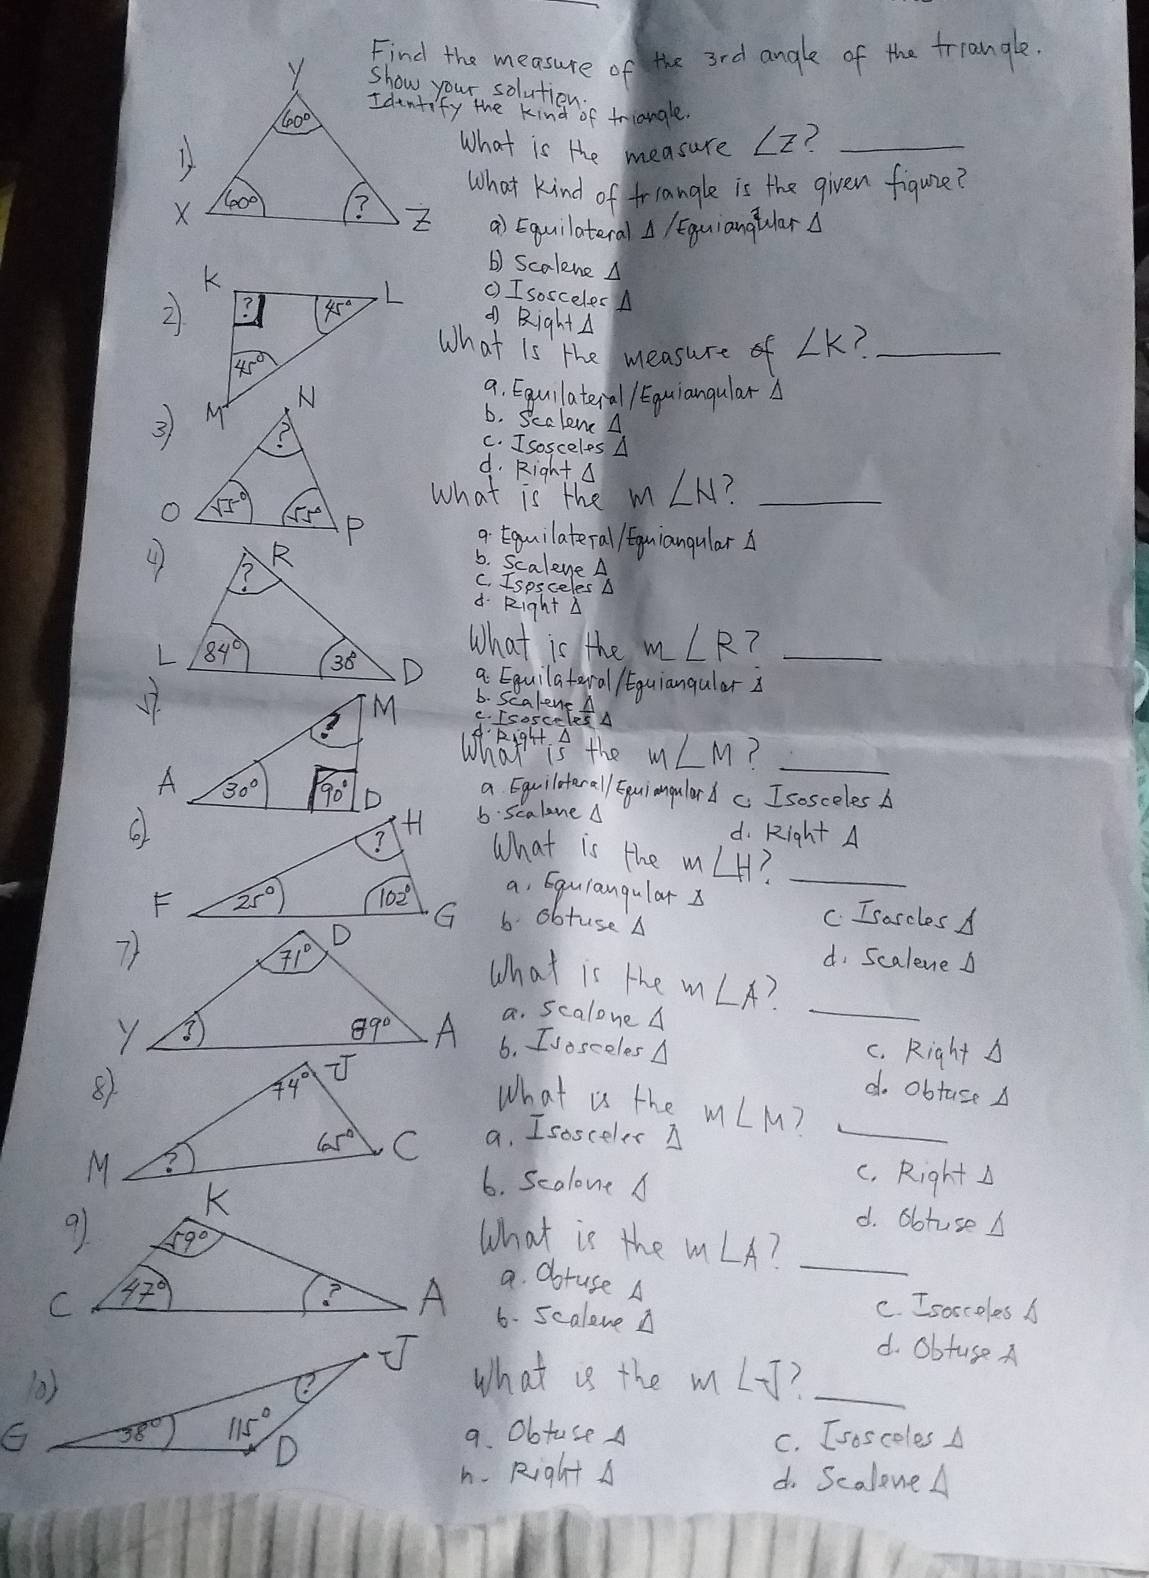 Find the measure of the 3rd angle of the triangle.
Show your solution.
Identify the kind of triangle.
1)
Y
60°
X
60°
?
Z
What is the measure ∠Z? ______
What kind of triangle is the given figure?
a) Equilateral Δ /Equiangular Δ
b) Scalene Δ
c) Isosceles Δ
d) Right Δ
2)
K
?
45°
L
45°
M
What is the measure of ∠K? ______
a. Equilateral/Equiangular Δ
b. Scalene Δ
c. Isosceles Δ
d. Right Δ
3)
N
?
O
55°
55°
P
What is the m ∠N? ______
a. Equilateral/Equiangular Δ
b. Scalene Δ
c. Isosceles Δ
d. Right Δ
4)
R
?
L
84°
38°
D
What is the m ∠R? ______
a. Equilateral/Equiangular Δ
b. Scalene Δ
c. Isosceles Δ
d. Right Δ
5)
M
?
A
30°
90°
D
What is the m∠M? ______
a. Equilateral/Equiangular Δ c. Isosceles Δ
b. Scalene Δ
d. Right Δ
6)
H
?
F
25°
102°
G
What is the m∠H? ______
a. Equiangular Δ
b. Obtuse Δ
c. Isoscles Δ
d. Scalene Δ
7)
D
71°
Y
?
89°
A
What is the m∠A? ______
a. Scalene Δ
b. Isosceles Δ
c. Right Δ
d. Obtuse Δ
8)
J
74°
M
?
65°
C
What is the m∠M? ______
a. Isosceles Δ
b. Scalene Δ
c. Right Δ
d. Obtuse Δ
9)
K
59°
C
47°
?
A
What is the m∠A? ______
a. Obtuse Δ
b. Scalene Δ
c. Isosceles Δ
d. Obtuse Δ
10)
J
?
G
38°
115°
D
What is the m ∠J? ______
a. Obtuse Δ
h. Right Δ
c. Isosceles Δ
d. Scalene Δ